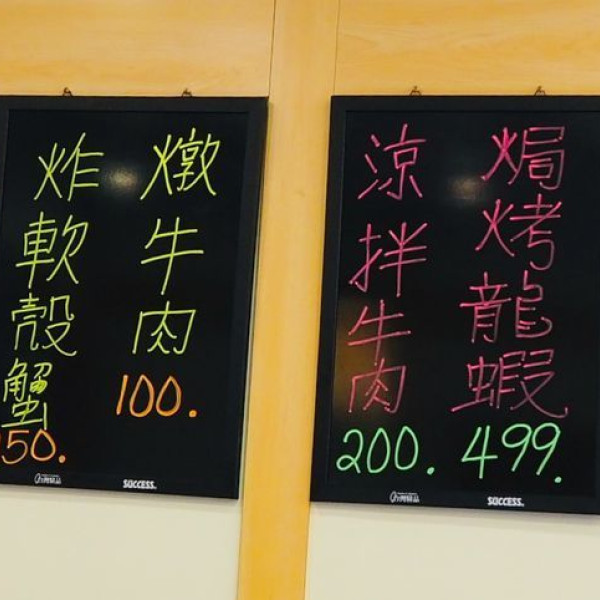 燉牛肉
100.
炸軟殼蟹
50.
SUCCESS.
焗烤龍蝦
499.
涼拌牛肉
200.
SUCCESS.